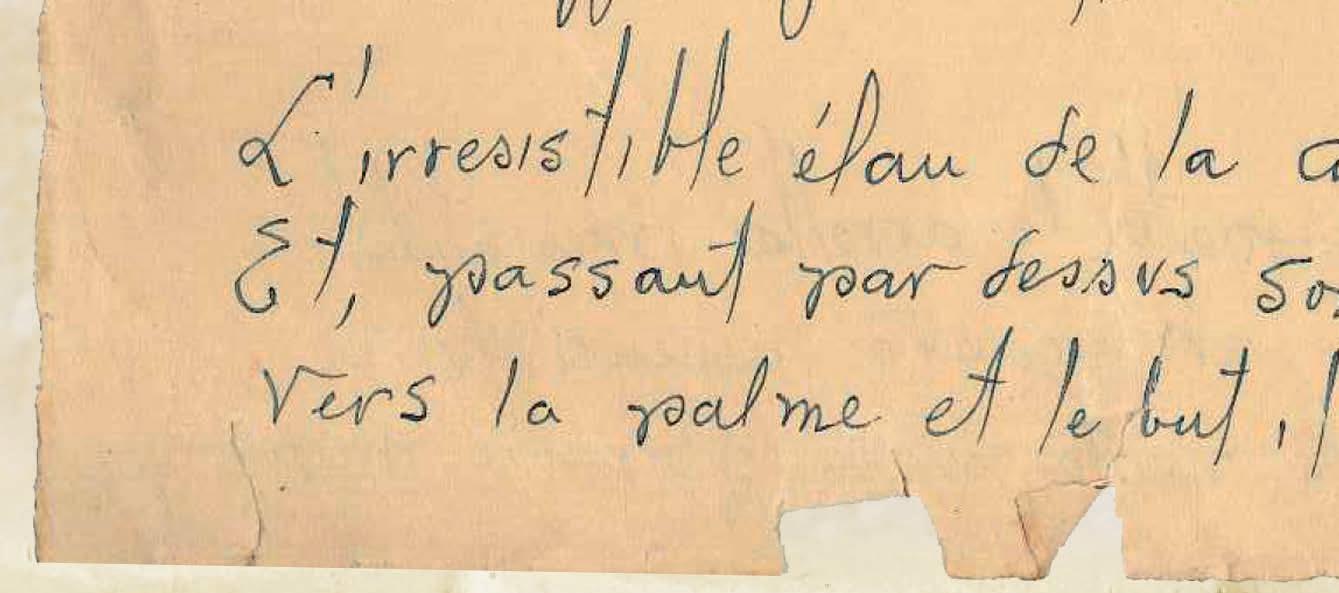 L'irresistible élan de la
Et, passant par dessus
Vers la palme et le but,